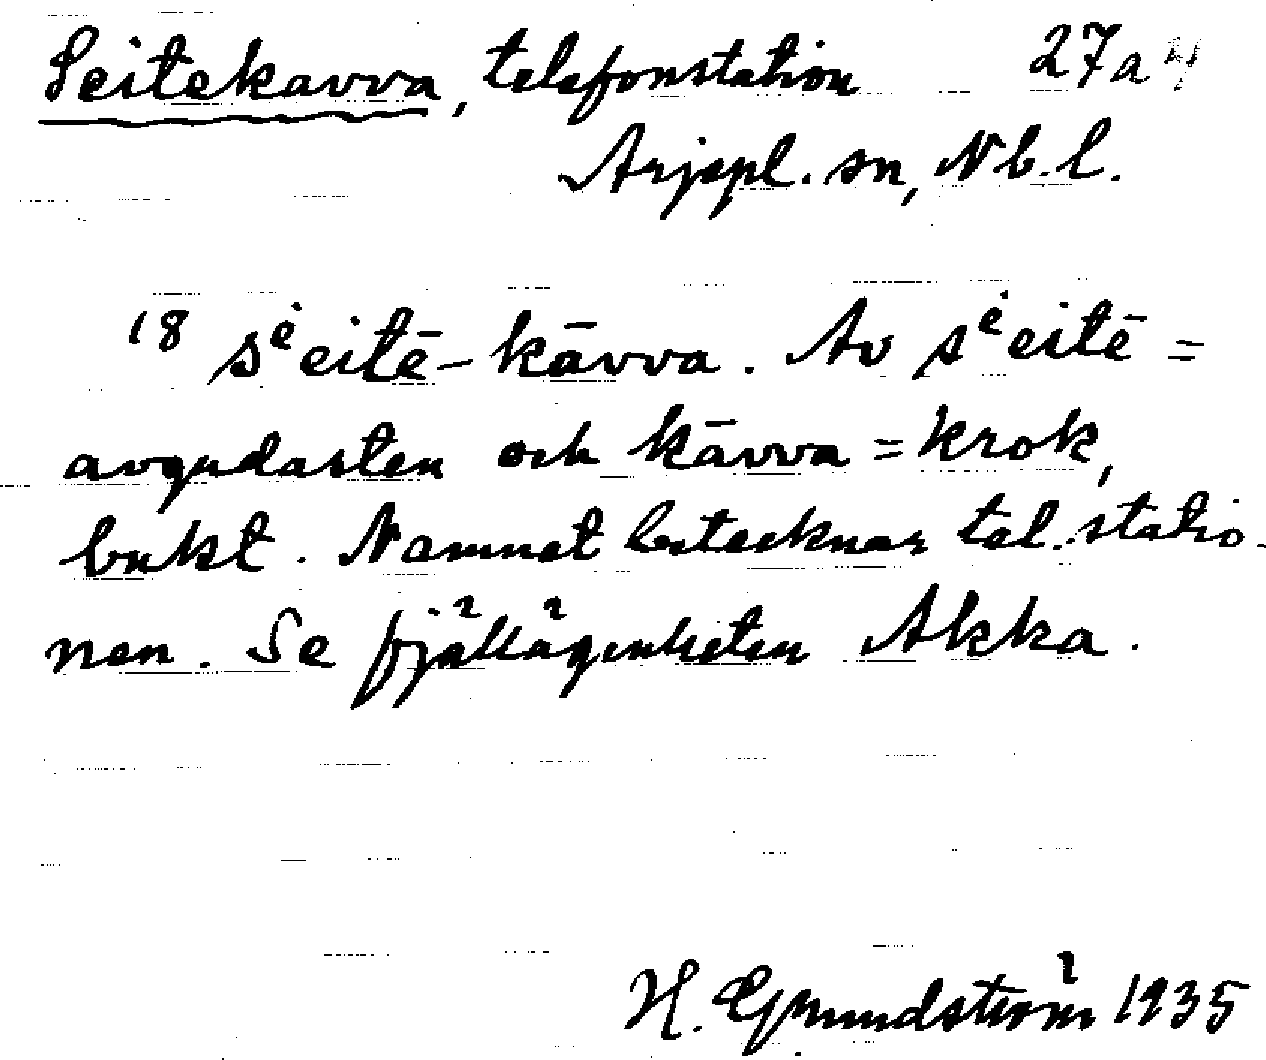 Seitekavva, telefonstation 27a4
Arjepl. sn, Nb. l.
18 sėeitē-kāvva. Av sėeitē =
avgudasten och kāvva = krok,
bukt. Namnet betecknar tel. statio-
nen. Se fjällägenheten Akka.
H. Grundström 1935